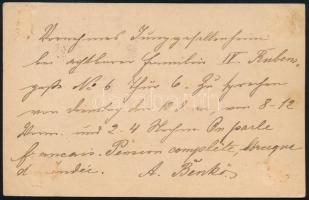 Vornehmes Junggesellenheim
bei achtbarer Familie IV. Ruben-
gasse No 6 Thür 6. Zu sprechen
von 8-12
Vorm. und 2-4 Nachm. On parle
français. Pension complète,
A. Benkö